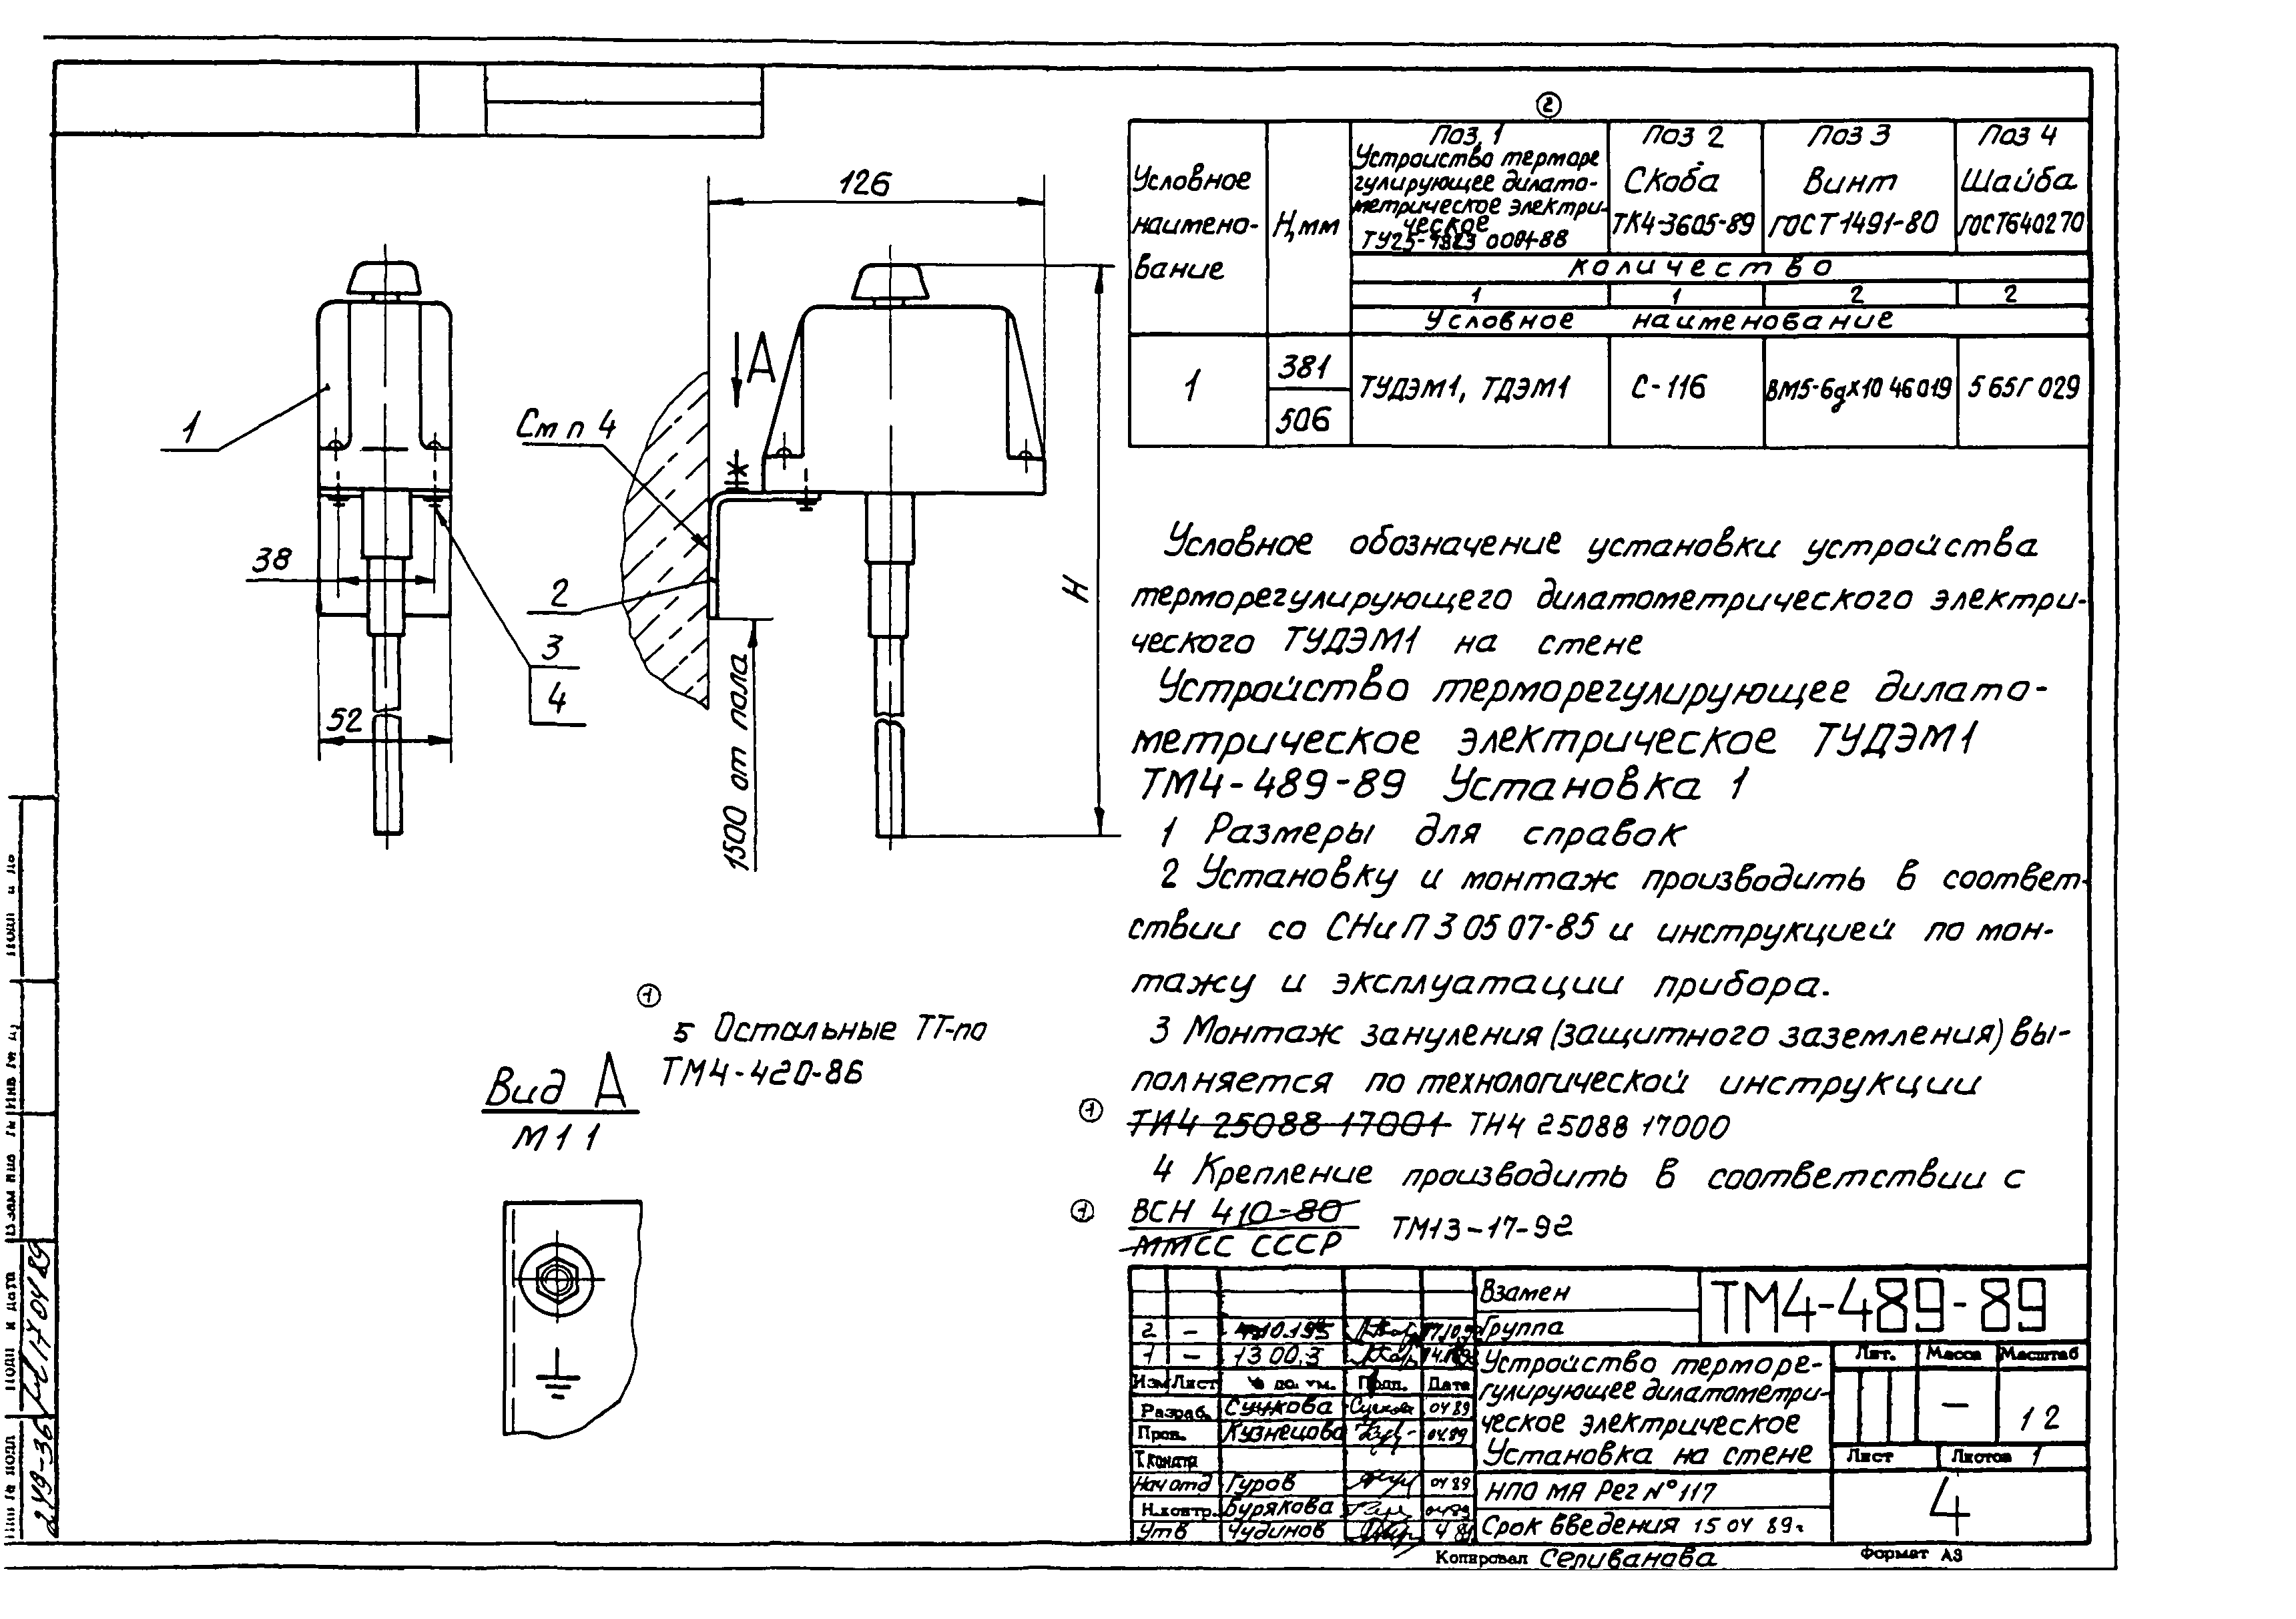 126
А
1
См п 4
38
2
3
4
52
1500 от пола
Н
2
Условное наимено-вание
Н,мм
Поз. 1
Устройство терморе
гулирующее дилато-
метрическое электри-
ческое
Поз 2
Скоба
ТК4-3605-89
Поз 3
Винт
ГОСТ 1491-80
Поз 4
Шайба
ГОСТ640270
количество
1 1 2 2
Условное наименование
1
381
506
ТУДЭМ1, ТДЭМ1
С-116
ВМ5-6gх10 46 019
5 65Г 029
Условное обозначение установки устройства
терморегулирующего дилатометрического электри-
ческого ТУДЭМ1 на стене
Устройство терморегулирующее дилато-
метрическое электрическое ТУДЭМ1
ТМ4-489-89 Установка 1
1 Размеры для справок
2 Установку и монтаж производить в соответ-
ствии со СНиП 3 05 07-85 и инструкцией по мон-
тажу и эксплуатации прибора.
3 Монтаж зануления (защитного заземления) вы-
полняется по технологической инструкции
1
ТИ4 25088 17001 ТН4 25088 17000
4 Крепление производить в соответствии с
1
ВСН 410-80
ММСС СССР
ТМ13-17-92
1
5 Остальные ТТ-по
ТМ4-420-86
Вид А
М 1 1
Взамен
Группа
ТМ4-489-89
2 -
1 - 13 00.3
Изм Лист докум. Подп. Дата
Разраб. 04 89
Пров. Кузнецова 04.89
Т.контр
Нач отд Гуров 04 89
Н.контр. Бурякова 04 89
Утв Чудинов
Устройство терморе-
гулирующее дилатометри-
ческое электрическое
Установка на стене
Лит. Масса Масштаб
- 1 2
Лист Листов 1
НПО МА Рег № 117
Срок введения 15 04 89г
4
Копировал Селиванова
Формат А3
Подп и дата
17 04 89